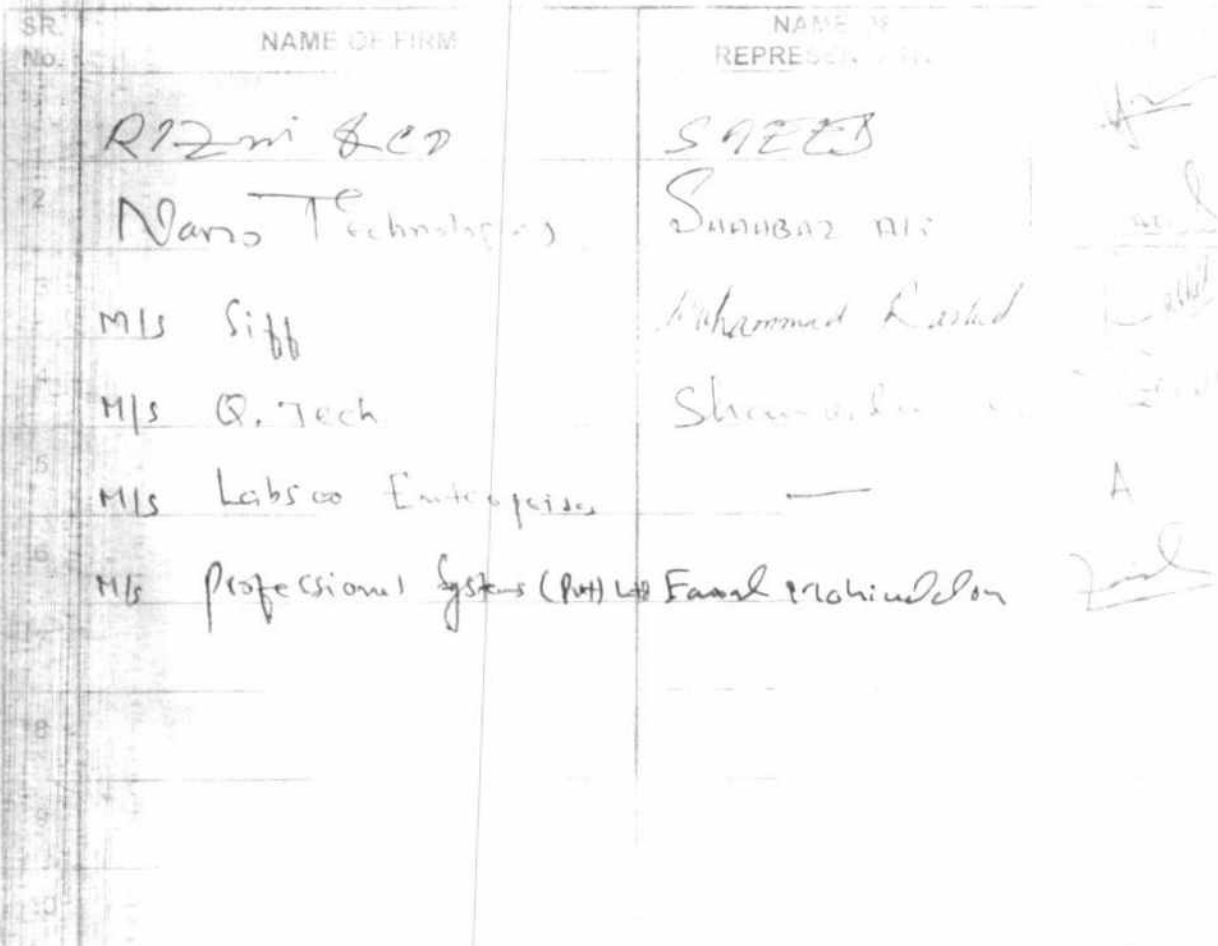 SR. No. NAME OF FIRM NAME REPRESEN
RIZVI & CO SAEED
2 Nano Technologies SHAHBAZ ALI
3 M/S Siff Muhammad Rashid
4 M/S Q. Tech
5 M/S Labsco Enterprises — A
6 M/S Professional Systems (Pvt) Ltd
8
9